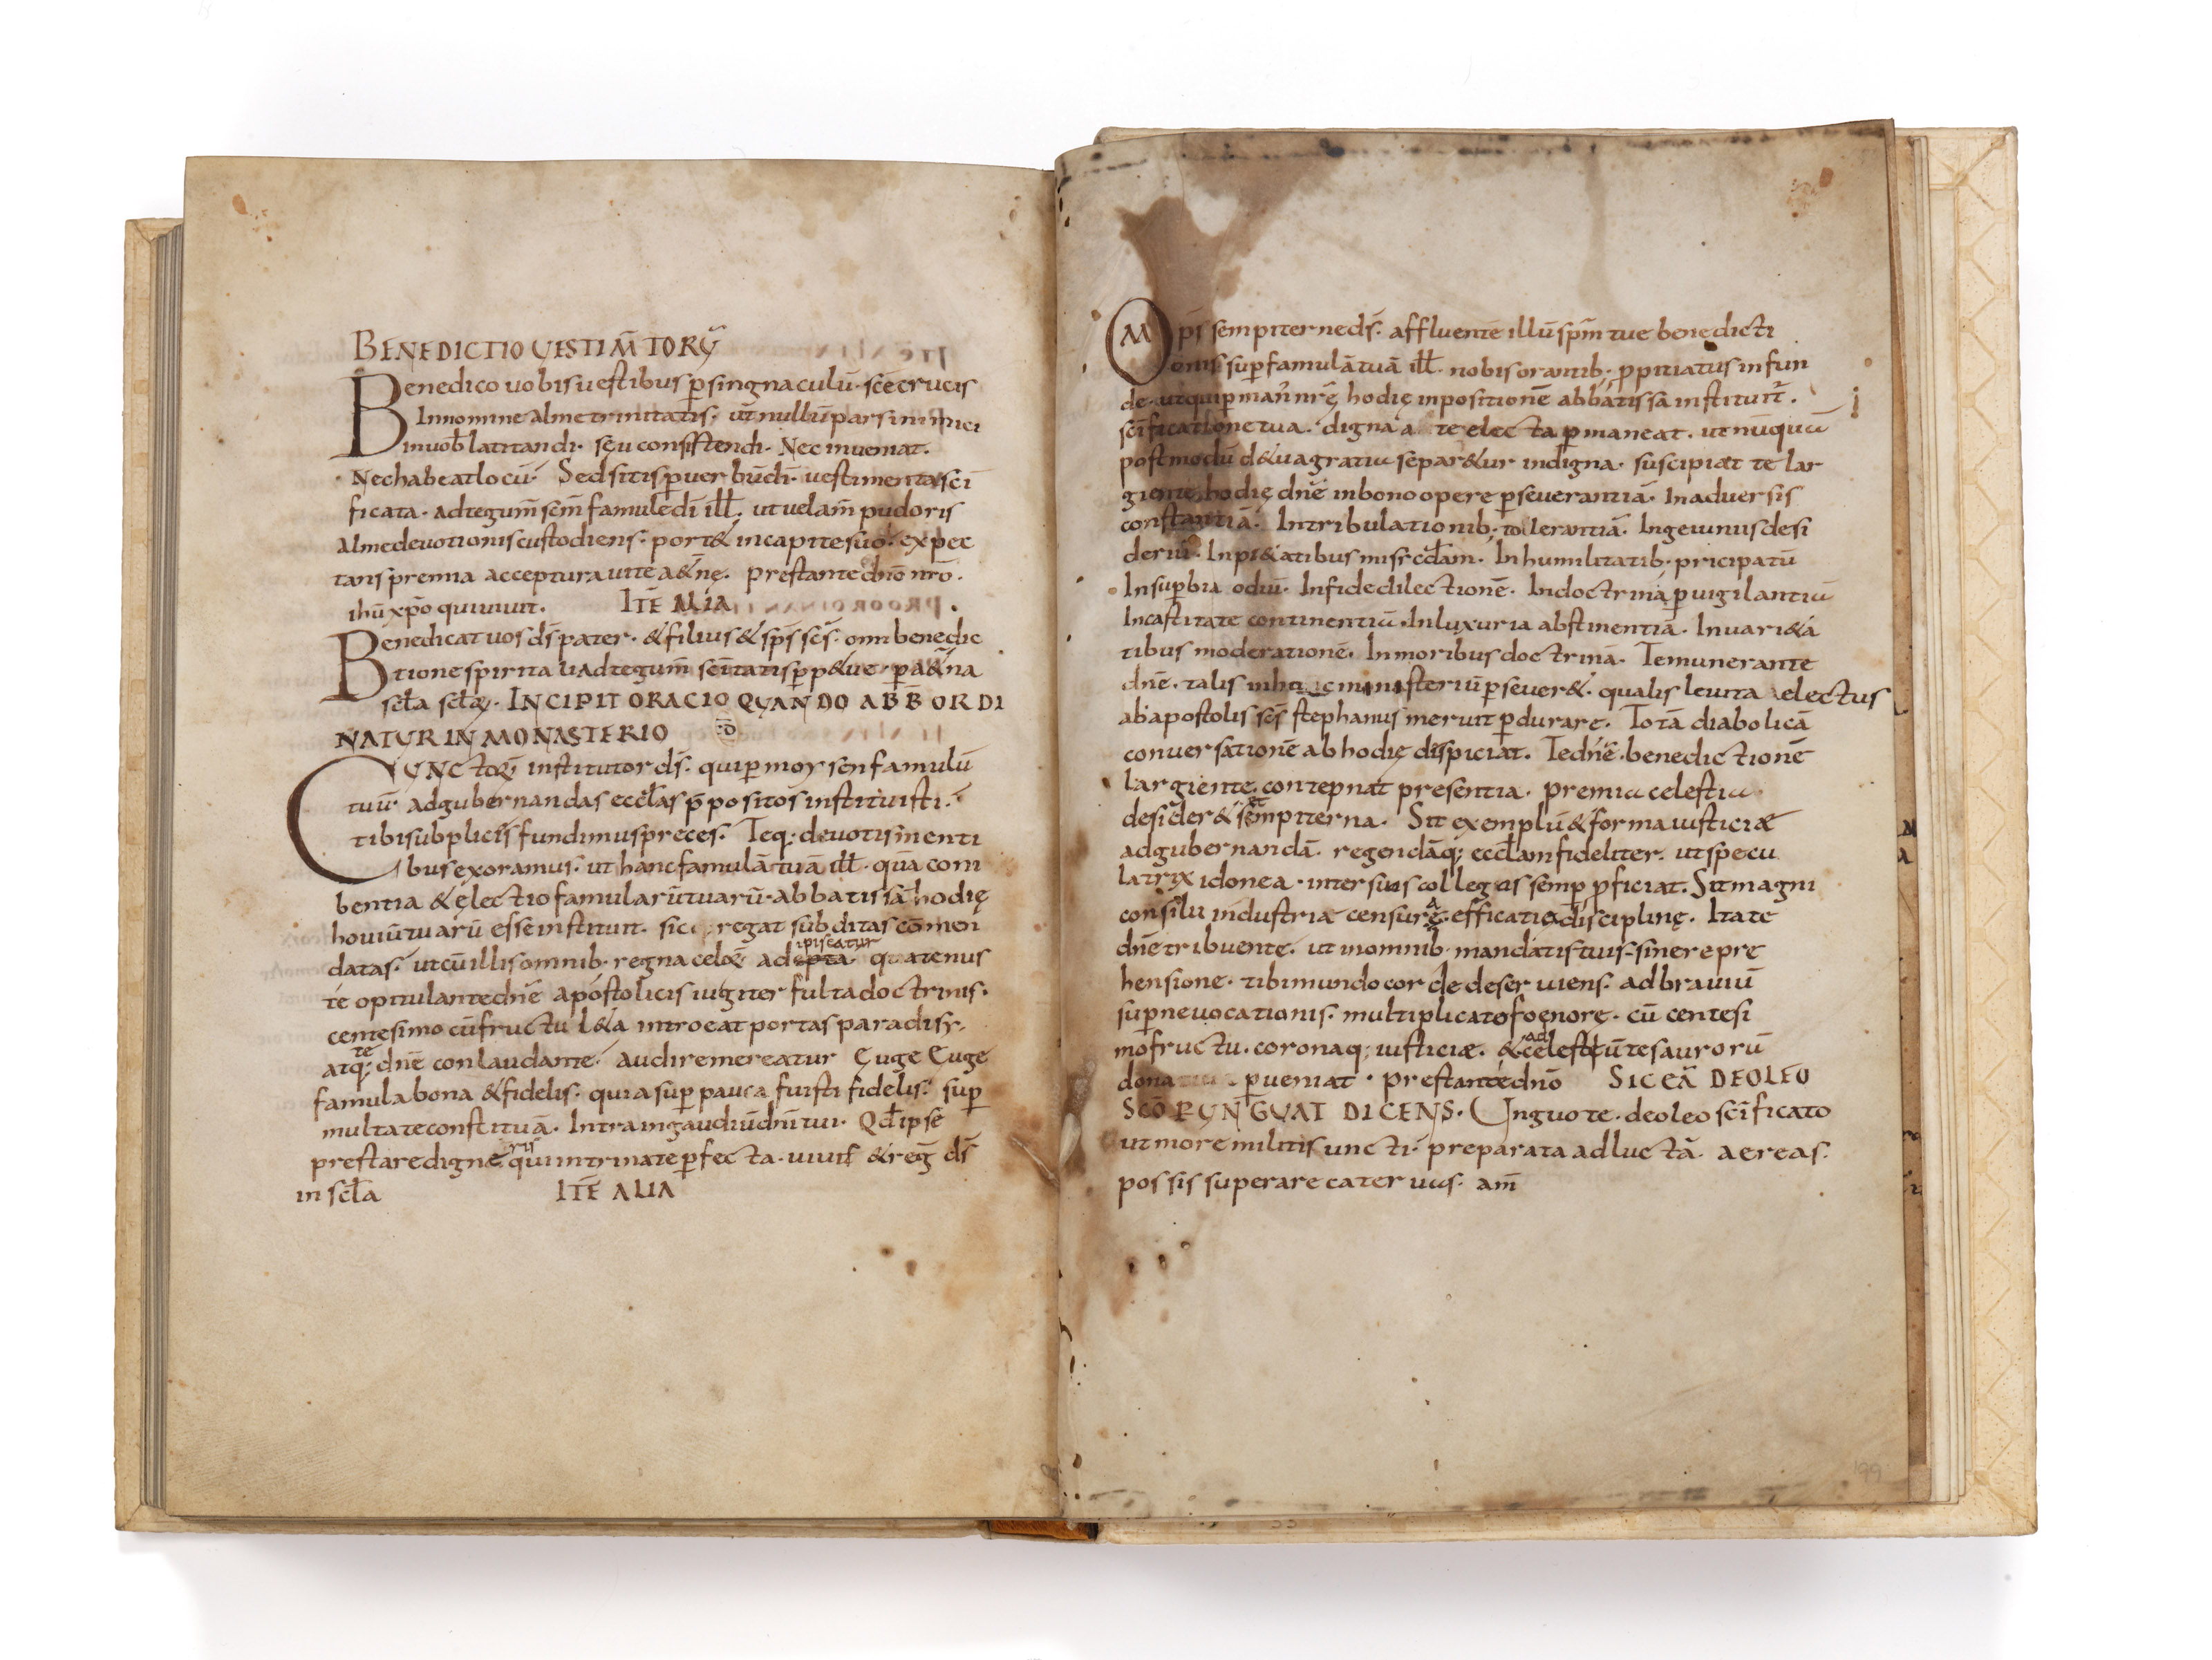 BENEDICTIO VESTIM̄TORŪ
Benedico uobis uestibus ꝑ singnaculū· sc̄e crucis
In nomine alme trinitatis· ut̄ nullū pars inimici
in uob̄ latitandi· seu consistendi· Nec inueniat·
Nec habeat locū· Sed sitis ꝑ uer būdi· uestimenta sc̄i
ficata· ad tegum̄ sem̄ famule dī ill̄· ut uelam̄ pudoris
alme deuotionis custodiens· port& in capite suo· expec
tans premia acceptura uite a&̄nę· prestante dn̄o nr̄o·
ihū xp̄o qui uiuit· ITĒ ALIA
Benedicat uos ds̄ pater· & filius & sp̄s sc̄s· omi benedic
tione spiritali ad tegum̄ sc̄itatis ꝑp&ue· ꝑ a&̄na
scl̄a scl̄oꝝ· INCIPIT ORACIO QUANDO ABB̄ ORDI
NATUR IN MONASTERIO
CUNCtoꝝ institutor ds̄· qui ꝑ moysen famulū
tuū ad gubernandas eccl̄as p̄positos instituisti·
tibi subplices fundimus preces· Teq· deuotis menti
bus exoramus· ut hanc famulā tuā ill̄· quā coni
bentia & electio famularū tuarū· abbatissā hodię
houiū tuarū esse instituit· sic regat subditas cōmen
datas· ut cū illis omnib· regna celoꝝ adepta quatenus
ipiscatur
te opitulante dn̄e apostolicis iugiter fulta doctrinis·
centesimo cū fructu l&a introeat portas paradisy·
te
atq; dn̄e conlaudante· audire mereatur Euge Euge
famula bona & fidelis· quia suꝑ pauca fuisti fidelis· suꝑ
multa te constituā· Intra in gaudiū dn̄i tui· Qd̄ ipse
prestare digne qui in trinitate ꝑfecta· uiuis & reḡ ds̄
in scl̄a ITĒ ALIA
Omps̄ sempiterne ds̄· affluente illū spm̄ tue benedicti
onis suꝑ famulā tuā ill̄· nobis orantib; ꝓpitiatus infun
de· ut qui ꝑ man̄ nr̄ę hodię inpositionē abbatissa instituit̄·
sc̄ificatione tua· digna a te electa ꝑmaneat· ut nūquā
postmodū d& ua gratia separ&ur indigna· suscipiat te lar
giente hodię dn̄e in bono opere ꝑseuerantiā· In aduersis
constantiā· In tribulationib; tolerantiā· In geiunus desi
deriū· In pi&atibus misrcd̄am· In humilitatib· pricipatū
In suꝑbia odiū· In fide dilectionē· In doctrina ꝑuigilantiā
In castitate continentiā· In luxuria abstinentiā· In uari&a
tibus moderationē· In moribus doctrinā· Te munerante
dn̄e· talis in hoc ministeriū ꝑseuer&· qualis leuita electus
ab apostolis sc̄s stephanus meruit ꝑdurare· Totā diabolicā
conuersationē ab hodię dispiciat· Te dn̄e· benedictionē
largiente· contepnat presentia· premia celestia·
et
desider& sempiterna· Sit exemplū & forma iusticiæ
ad gubernandā· regendāq; eccl̄am fideliter· ut specu
latrix idonea· inter suas collegas semꝑ ꝓficiat· Sit magni
a
consilii industriæ censurę· efficatia disciplinę· Ita te
dn̄e tribuente· ut in omnib· mandatis tuis· sine repre
hensione· tibi mundo corde deseruiens· ad brauiū
suꝑne uocationis· multiplicato foenore· cū centesi
ad
mo fructu· coronaq; iusticiæ· & celestiū tesaurorū
dona ꝑueniat· prestante dn̄o SIC EĀ DE OLEO
SCŌ PUNGUAT DICENS· Unguo te· de oleo sc̄ificato
ut more militis uncti· preparata ad luctā· aereas·
possis superare cateruas· am̄
199